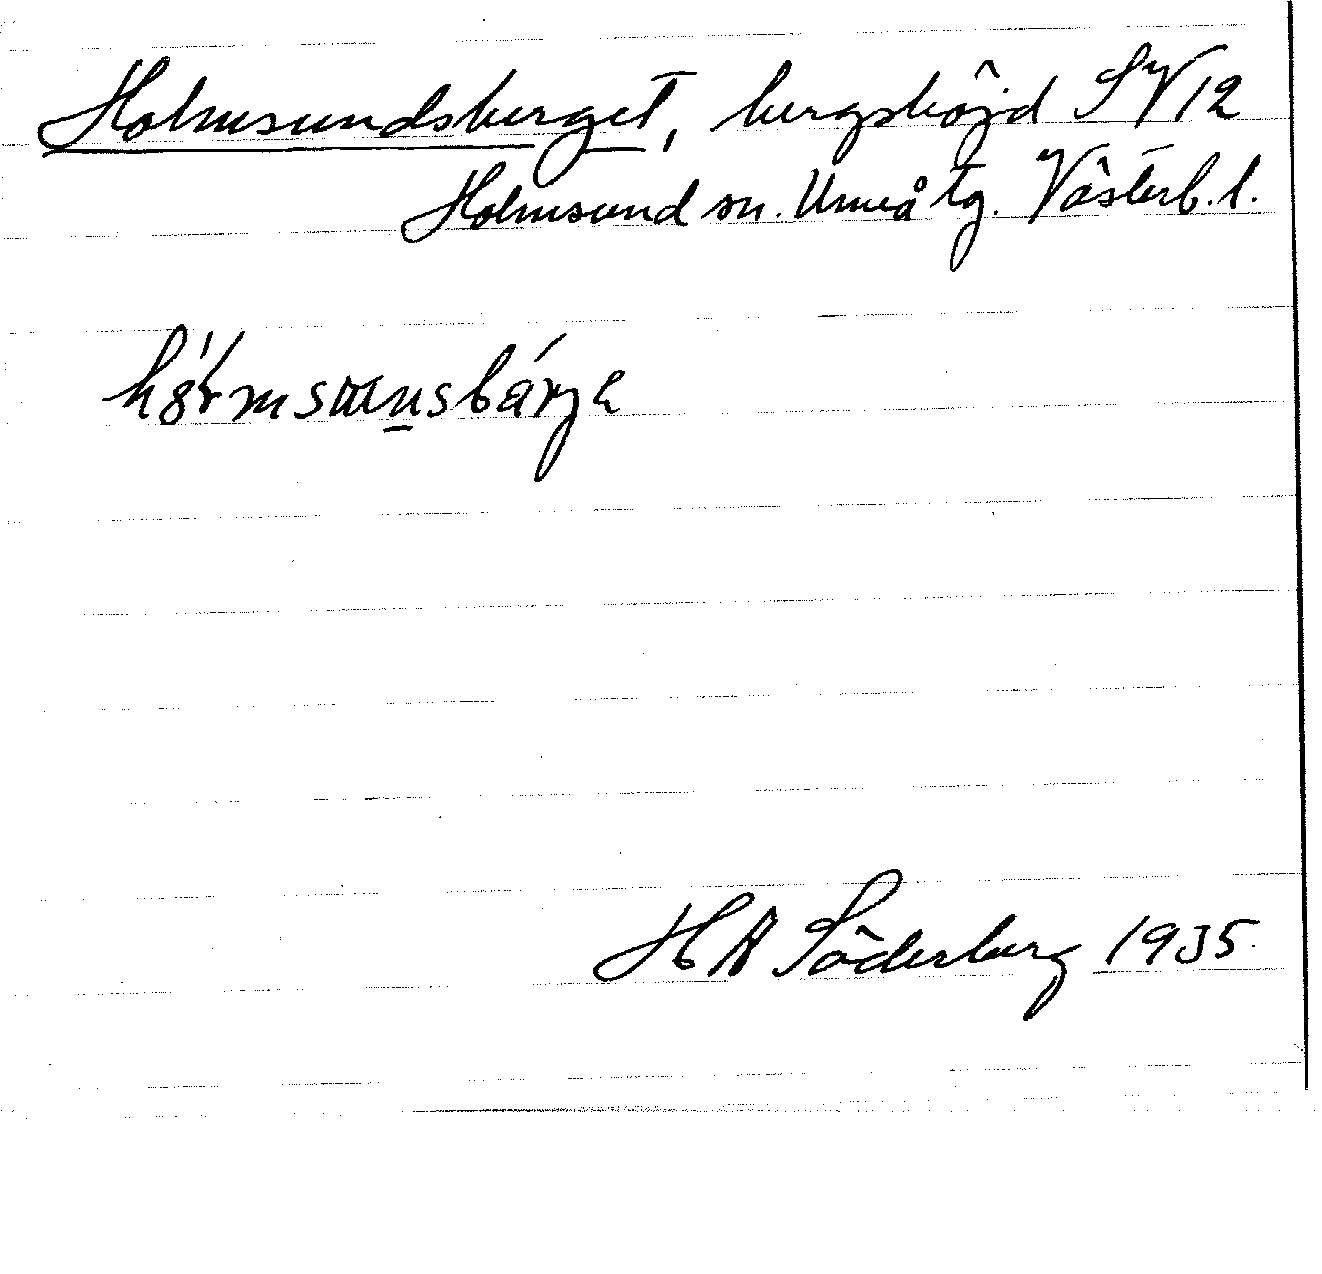 Holmsundsberget, bergshöjd SV12
Holmsund sn. Umeå tg. Västerb. l.
H A Söderberg 1935